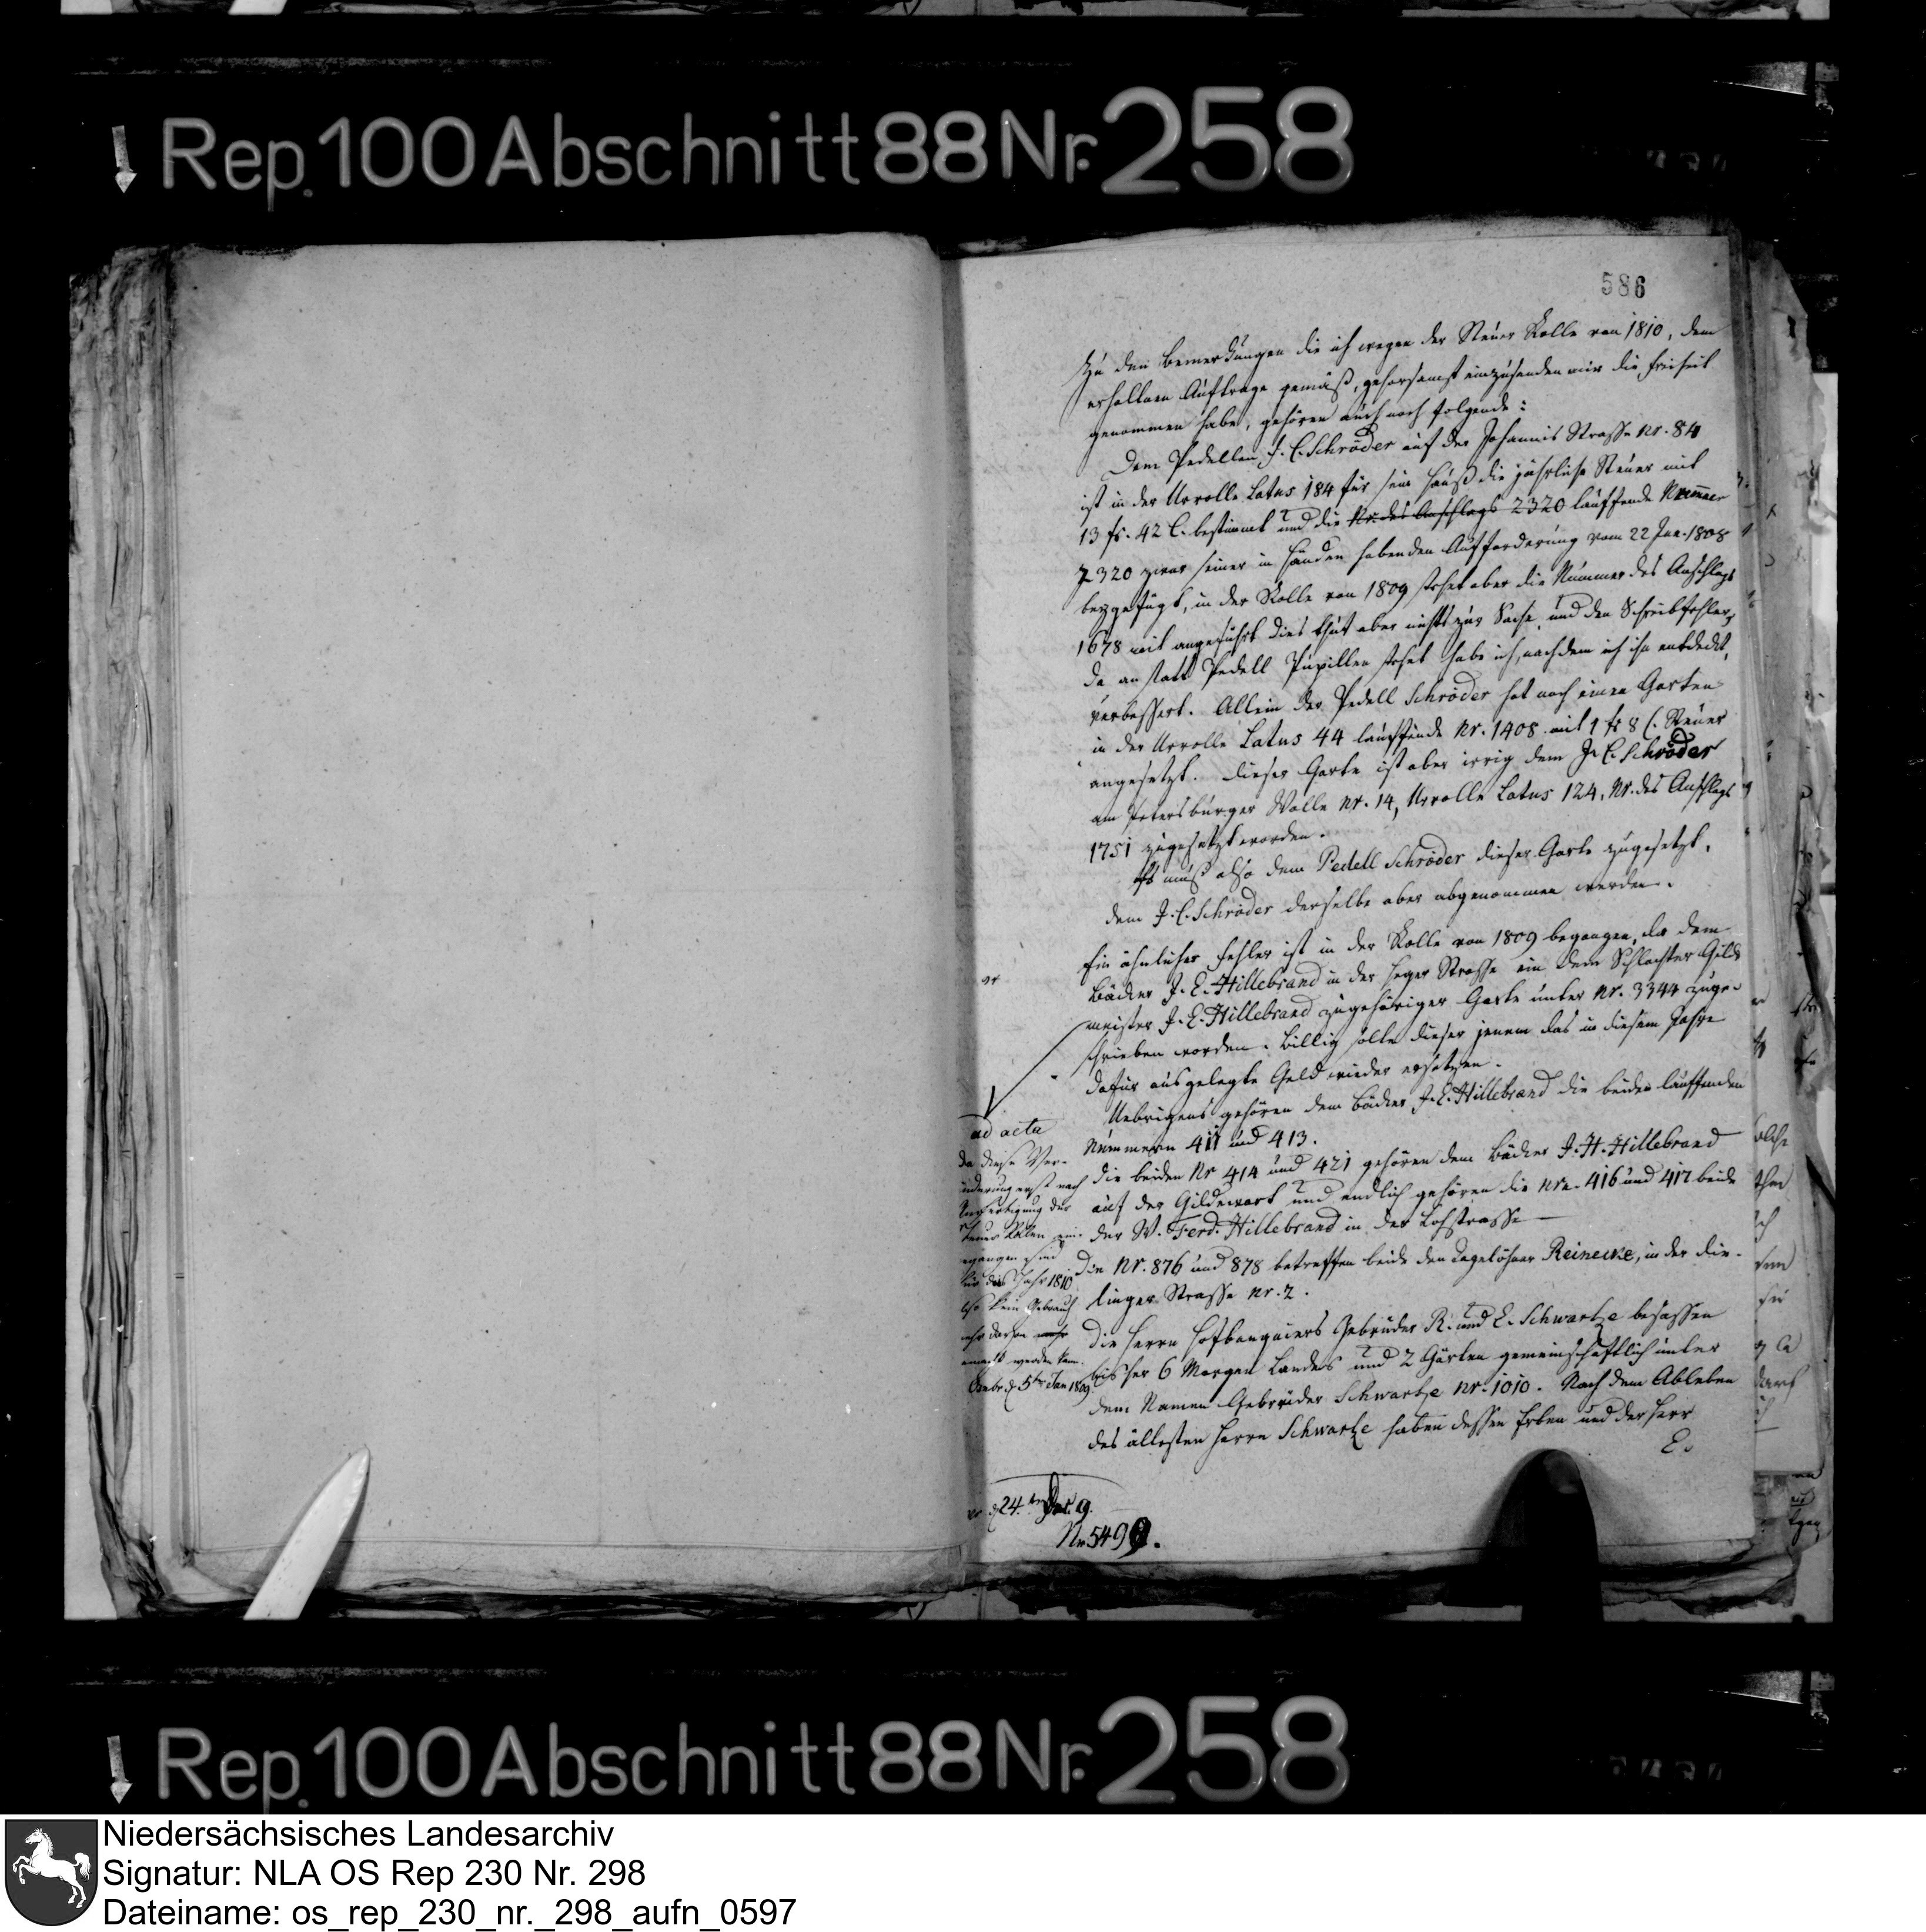 Rep. 100 Abschnitt 88 Nr. 258
586
Zu den Bemerkungen die ich wegen der Steuer Rolle von 1810, dem
erhaltnen Auftrage gemäß, gehorsamst einzusenden mir die Freiheit
genommen habe, gehören auch noch folgende:
Dem Pedellen J. C. Schröder auf der Johannis Straße Nr. 84
ist in der Urrolle Latus 184 für sein Hauß die jährliche Steuer mit
13 fs. 42 C. bestimmt und die Nr. des Anschlags 2320 lauffende Nummer
2320 zwar seiner in Händen habenden Aufforderung vom 22 Jan. 1808
beygefügt, in der Rolle von 1809 stehet aber die Nummer des Anschlags
1678 mit angeführt dies thut aber nichts zur Sache, und den Schreibfehler,
da anstatt Pedell Pupillen stehet habe ich, nachdem ich ihn entdeckt,
verbessert. Allein der Pedell Schröder hat noch einen Garten
in der Urrolle Latus 44 lauffende Nr. 1408 mit 1 fs 8 C. Steuer
angesetzt. Dieser Garte ist aber irrig dem J. C. Schröder
am Petersburger Walle Nr. 14, Urrolle Latus 124, Nr. des Anschlags
1751 zugesetzt worden.
Es muß also dem Pedell Schröder dieser Garte zugesetzt,
dem J. C. Schröder derselbe aber abgenommen werden.
Ein ähnlicher Fehler ist in der Rolle von 1809 begangen, da dem
Bäcker J. E. Hillebrand in der Heger Strasse ein dem Schlachter Gilde
meister J. E. Hillebrand zugehöriger Garte unter Nr. 3344 zuge-
schrieben worden. Billig sollte dieser jenem das in diesem Jahre
dafür ausgelegte Geld wieder ersetzen.
Uebrigens gehören dem Bäcker J. E. Hillebrand die beiden lauffenden
Nummern 411 und 413.
die beiden Nr 414 und 421 gehören dem Bäcker J. H. Hillebrand
auf der Gildewart und endlich gehören die Nrn. 416 und 417 beide
der W. Ferd. Hillebrand in der Lohstrasse
Die Nr. 876 und 878 betreffen beide den Tagelöhner Reinecke, in der Die-
linger Strasse Nr. 2.
Die Herrn Hofbanquiers Gebrüder R. und E. Schwartze besassen
bisher 6 Morgen Landes und 2 Gärten gemeinschaftlich unter
dem Namen Gebrüder Schwartze Nr. 1010. Nach dem Ableben
des ältesten Herrn Schwartze haben dessen Erben und der Herr
E.
ad acta
da diese Ver-
änderung erst nach
Anfertigung der
Steuer Rollen ein-
gegangen sind
für das Jahr 1810
also kein Gebrauch
mehr davon mehr
gemacht werden kann.
5ten Jan 1809
24ten Dec. 9.
Nr. 5490.
Rep. 100 Abschnitt 88 Nr. 258
Niedersächsisches Landesarchiv
Signatur: NLA OS Rep 230 Nr. 298
Dateiname: os_rep_230_nr._298_aufn_0597